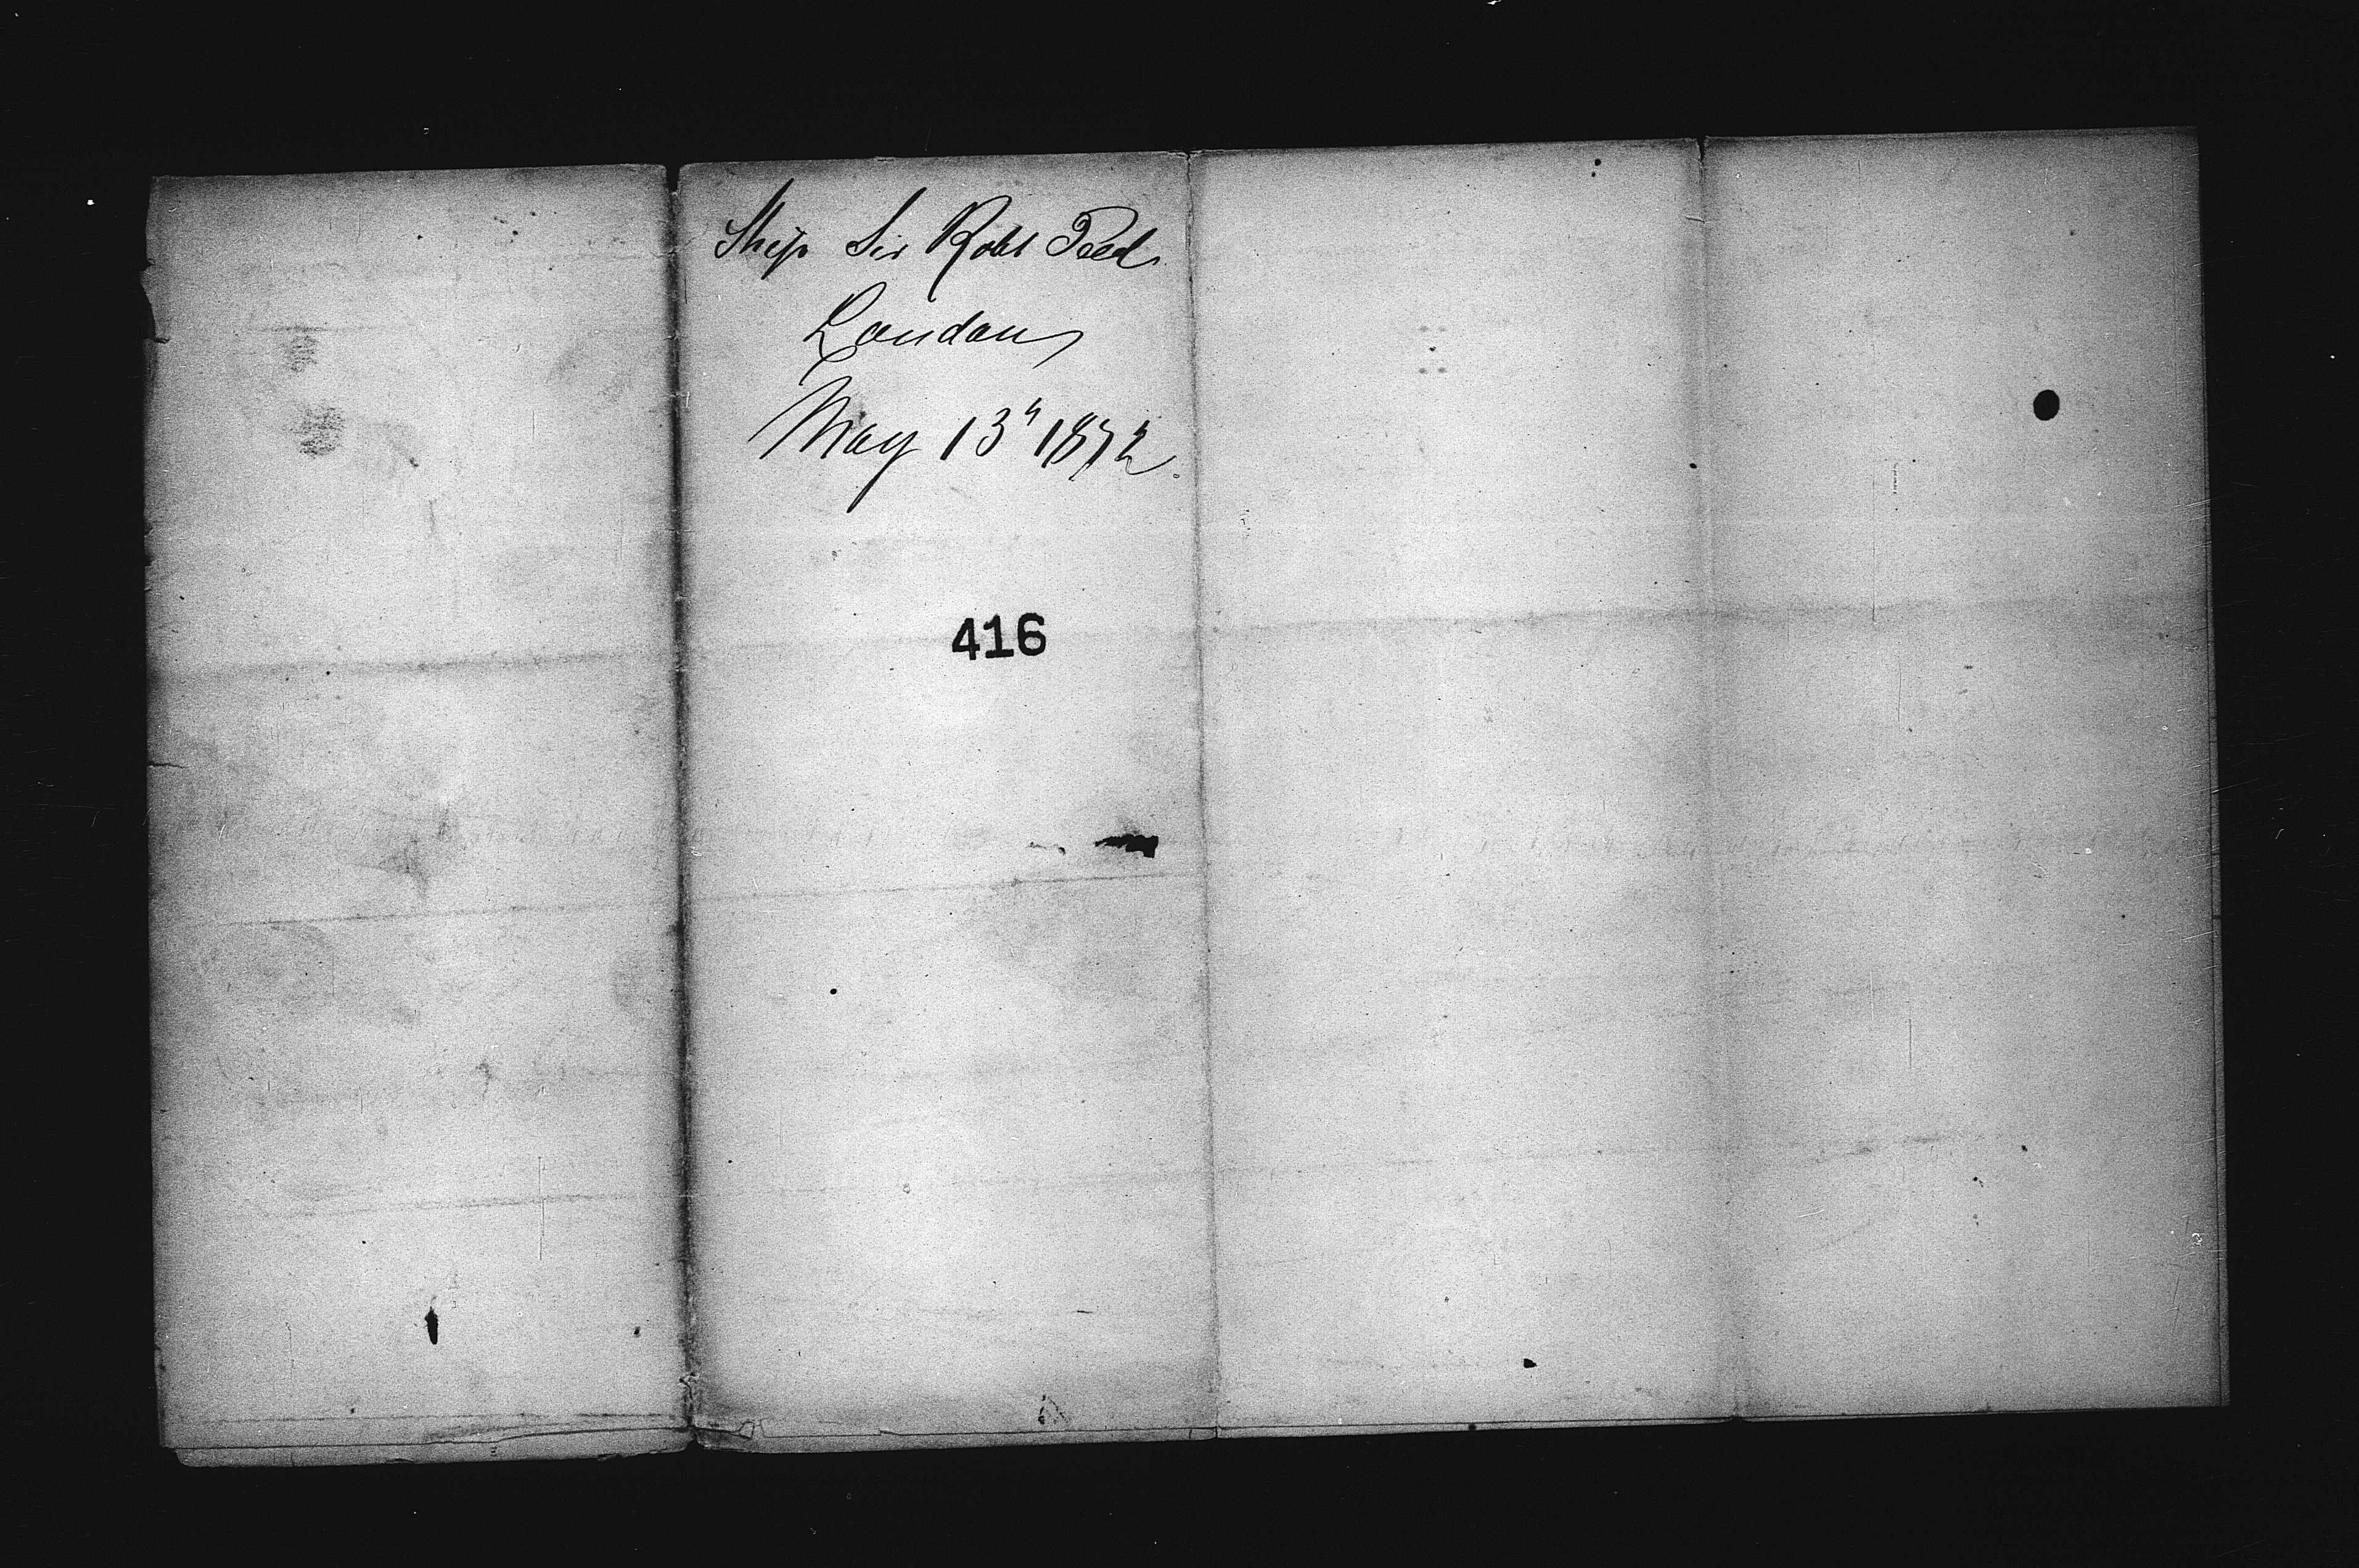 Ship Sir Robt Peel
London
May 13" 1872.
416